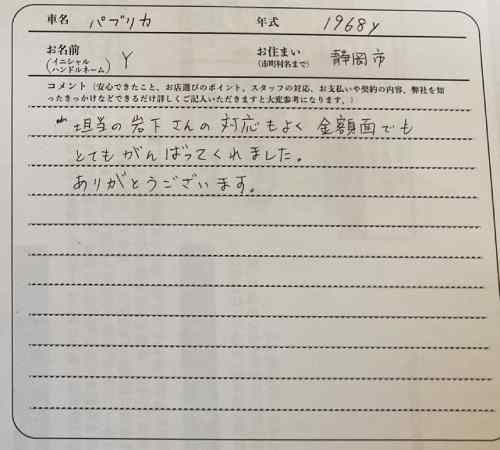 車名 パブリカ 年式 1968y
お名前 (イニシャル ハンドルネーム) Y お住まい (市町村名まで) 静岡市
コメント (安心できたこと、お店選びのポイント、スタッフの対応、お支払いや契約の内容、弊社を知
ったきっかけなどできるだけ詳しくご記入いただきますと大変参考になります。)
担当の岩下さんの対応もよく金額面でも
とてもがんばってくれました。
ありがとうございます。